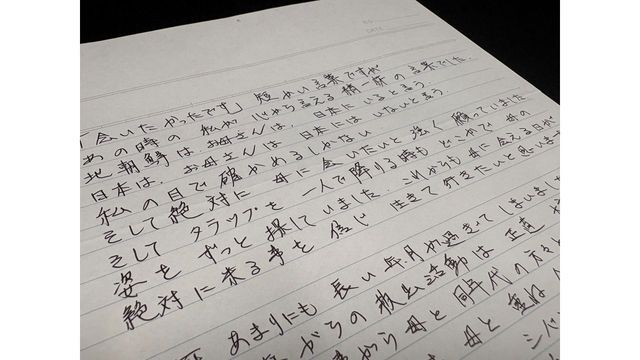 「会いたかったです」短かい言葉ですが
あの時の私が じゃち言える精一杯の言葉でした.
北朝鮮は お母さんは、日本にいると言う
日本は、お母さんは、日本にはいないと言う
私の目で確かめるしかない
そして絶対に 母に会いたいと強く願っていました
そして タラップを 一人で降りる時も どこかで 母の
姿を ずっと 探していました. これからも 母に会える日が
絶対に来る事を 信じ 生きて行きたいと思います
あまりにも 長い年月が過ぎてしまいました
からの救出活動は 正直
から母と同年代の方々と
母と重ね